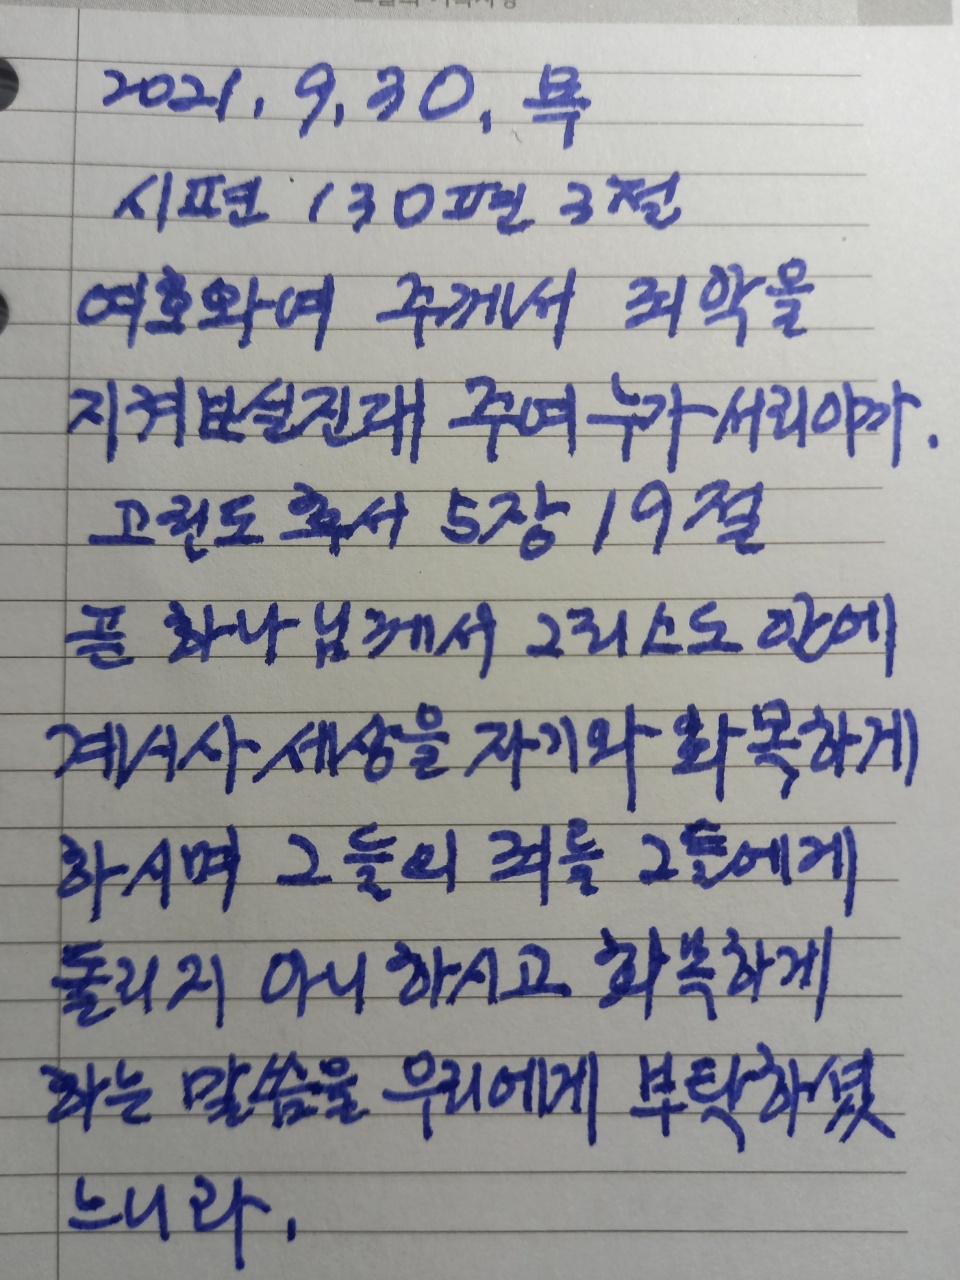 2021. 9. 30. 목
시편 130편 3절
여호와여 주께서 죄악을
지켜보실진대 주여 누가 서리이까.
고린도 후서 5장 19절
곧 하나님께서 그리스도 안에
계시사 세상을 자기와 화목하게
하시며 그들의 죄를 그들에게
돌리지 아니하시고 화목하게
하는 말씀을 우리에게 부탁하셨
느니라.